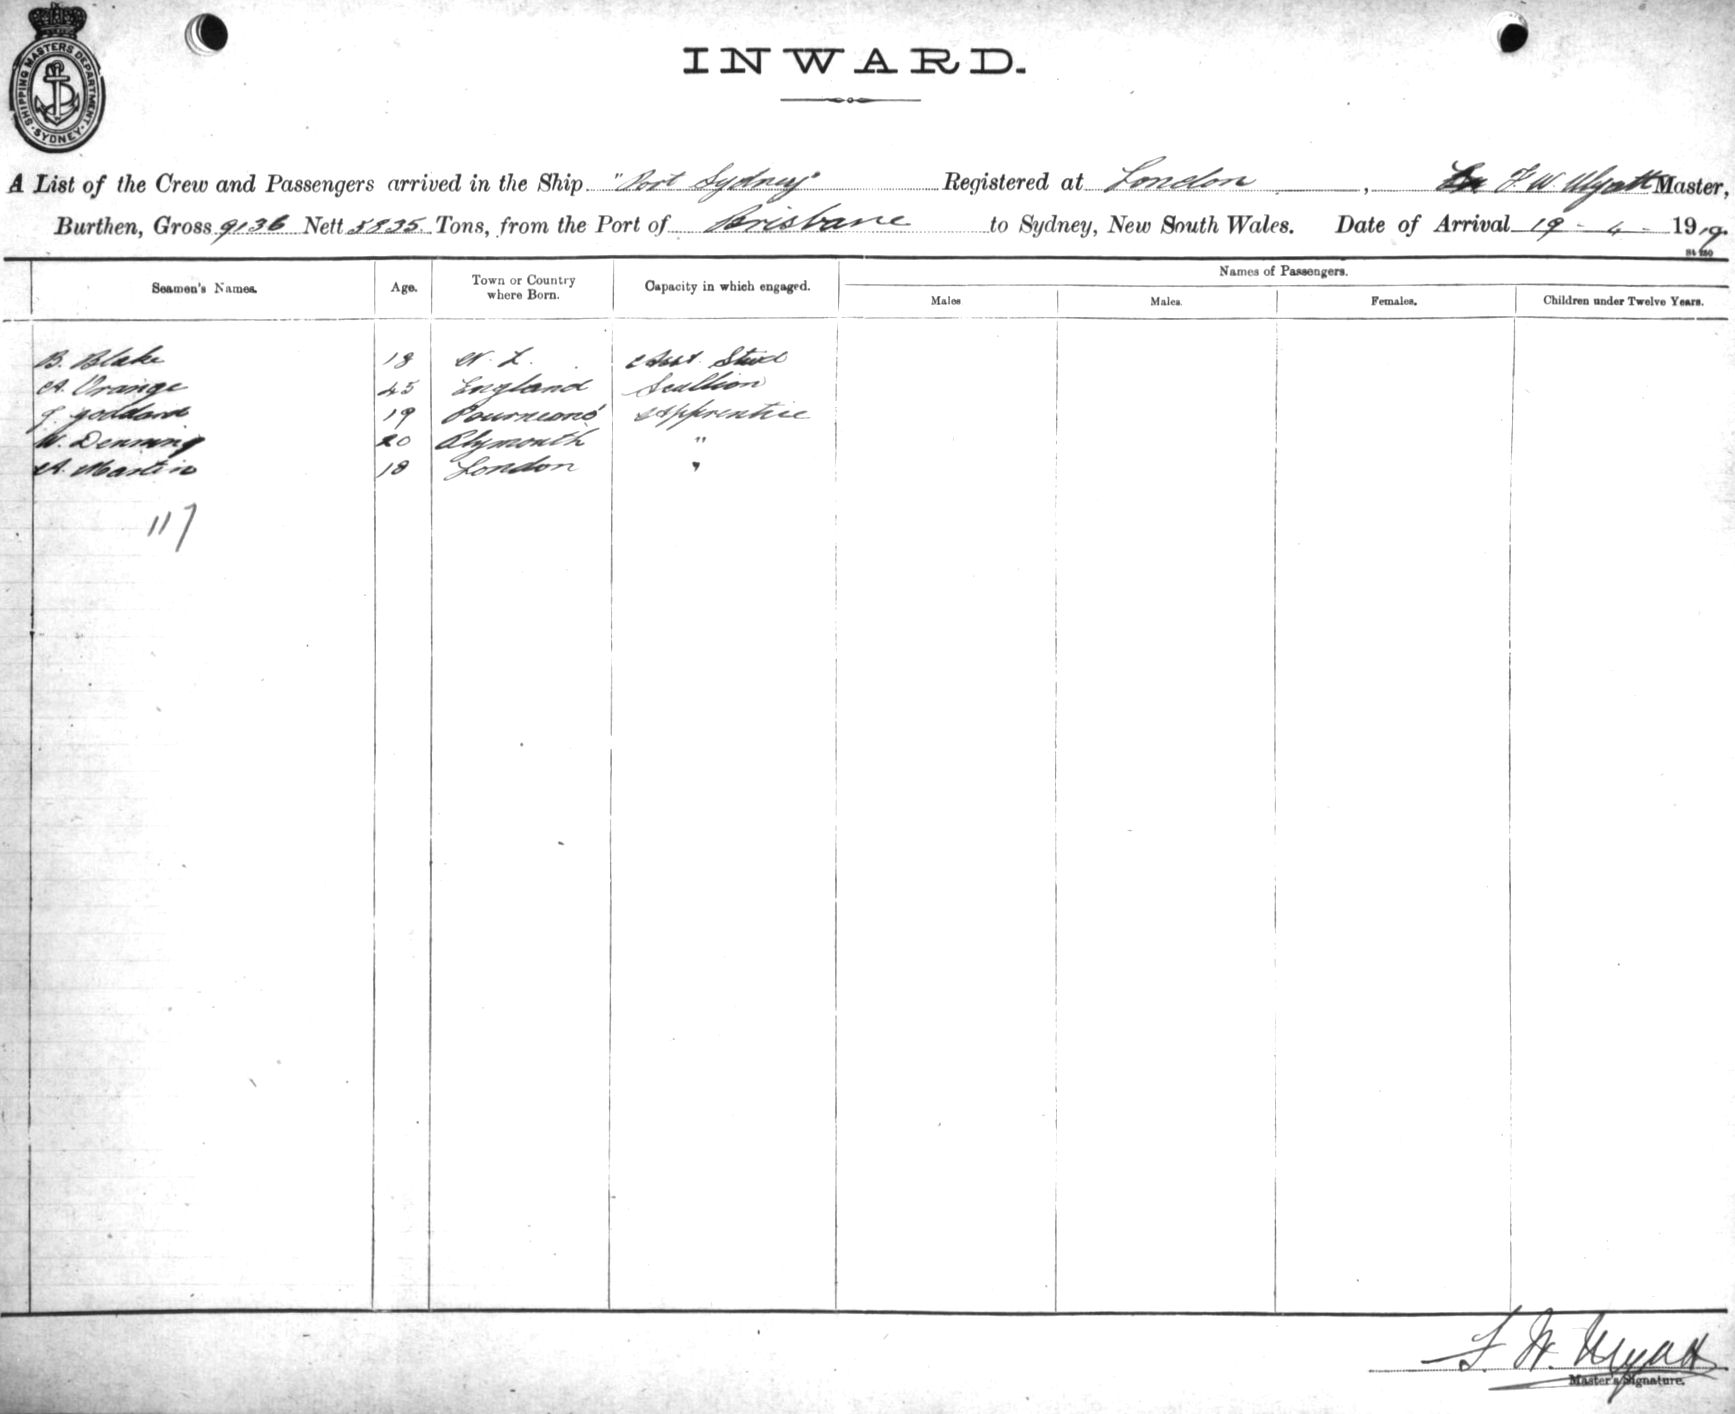 SHIPPING MASTERS DEPARTMENT · SYDNEY ·
INWARD.
A List of the Crew and Passengers arrived in the Ship "Port Sydney" Registered at London, F. W. Wyatt Master,
Burthen, Gross 9136 Nett 5835 Tons, from the Port of Brisbane to Sydney, New South Wales. Date of Arrival 19 - 4 - 1919.
Seamen's Names. Age. Town or Country where Born. Capacity in which engaged. Names of Passengers.
Males Males. Females. Children under Twelve Years.
B. Blake 18 N. Z. Asst. Stwd
A. Orange 45 England Scullion
J. Goddard 19 Apprentice
W. Denning 20 Plymouth "
A. Martin 18 London "
117
F. W. Wyatt
Master's Signature.